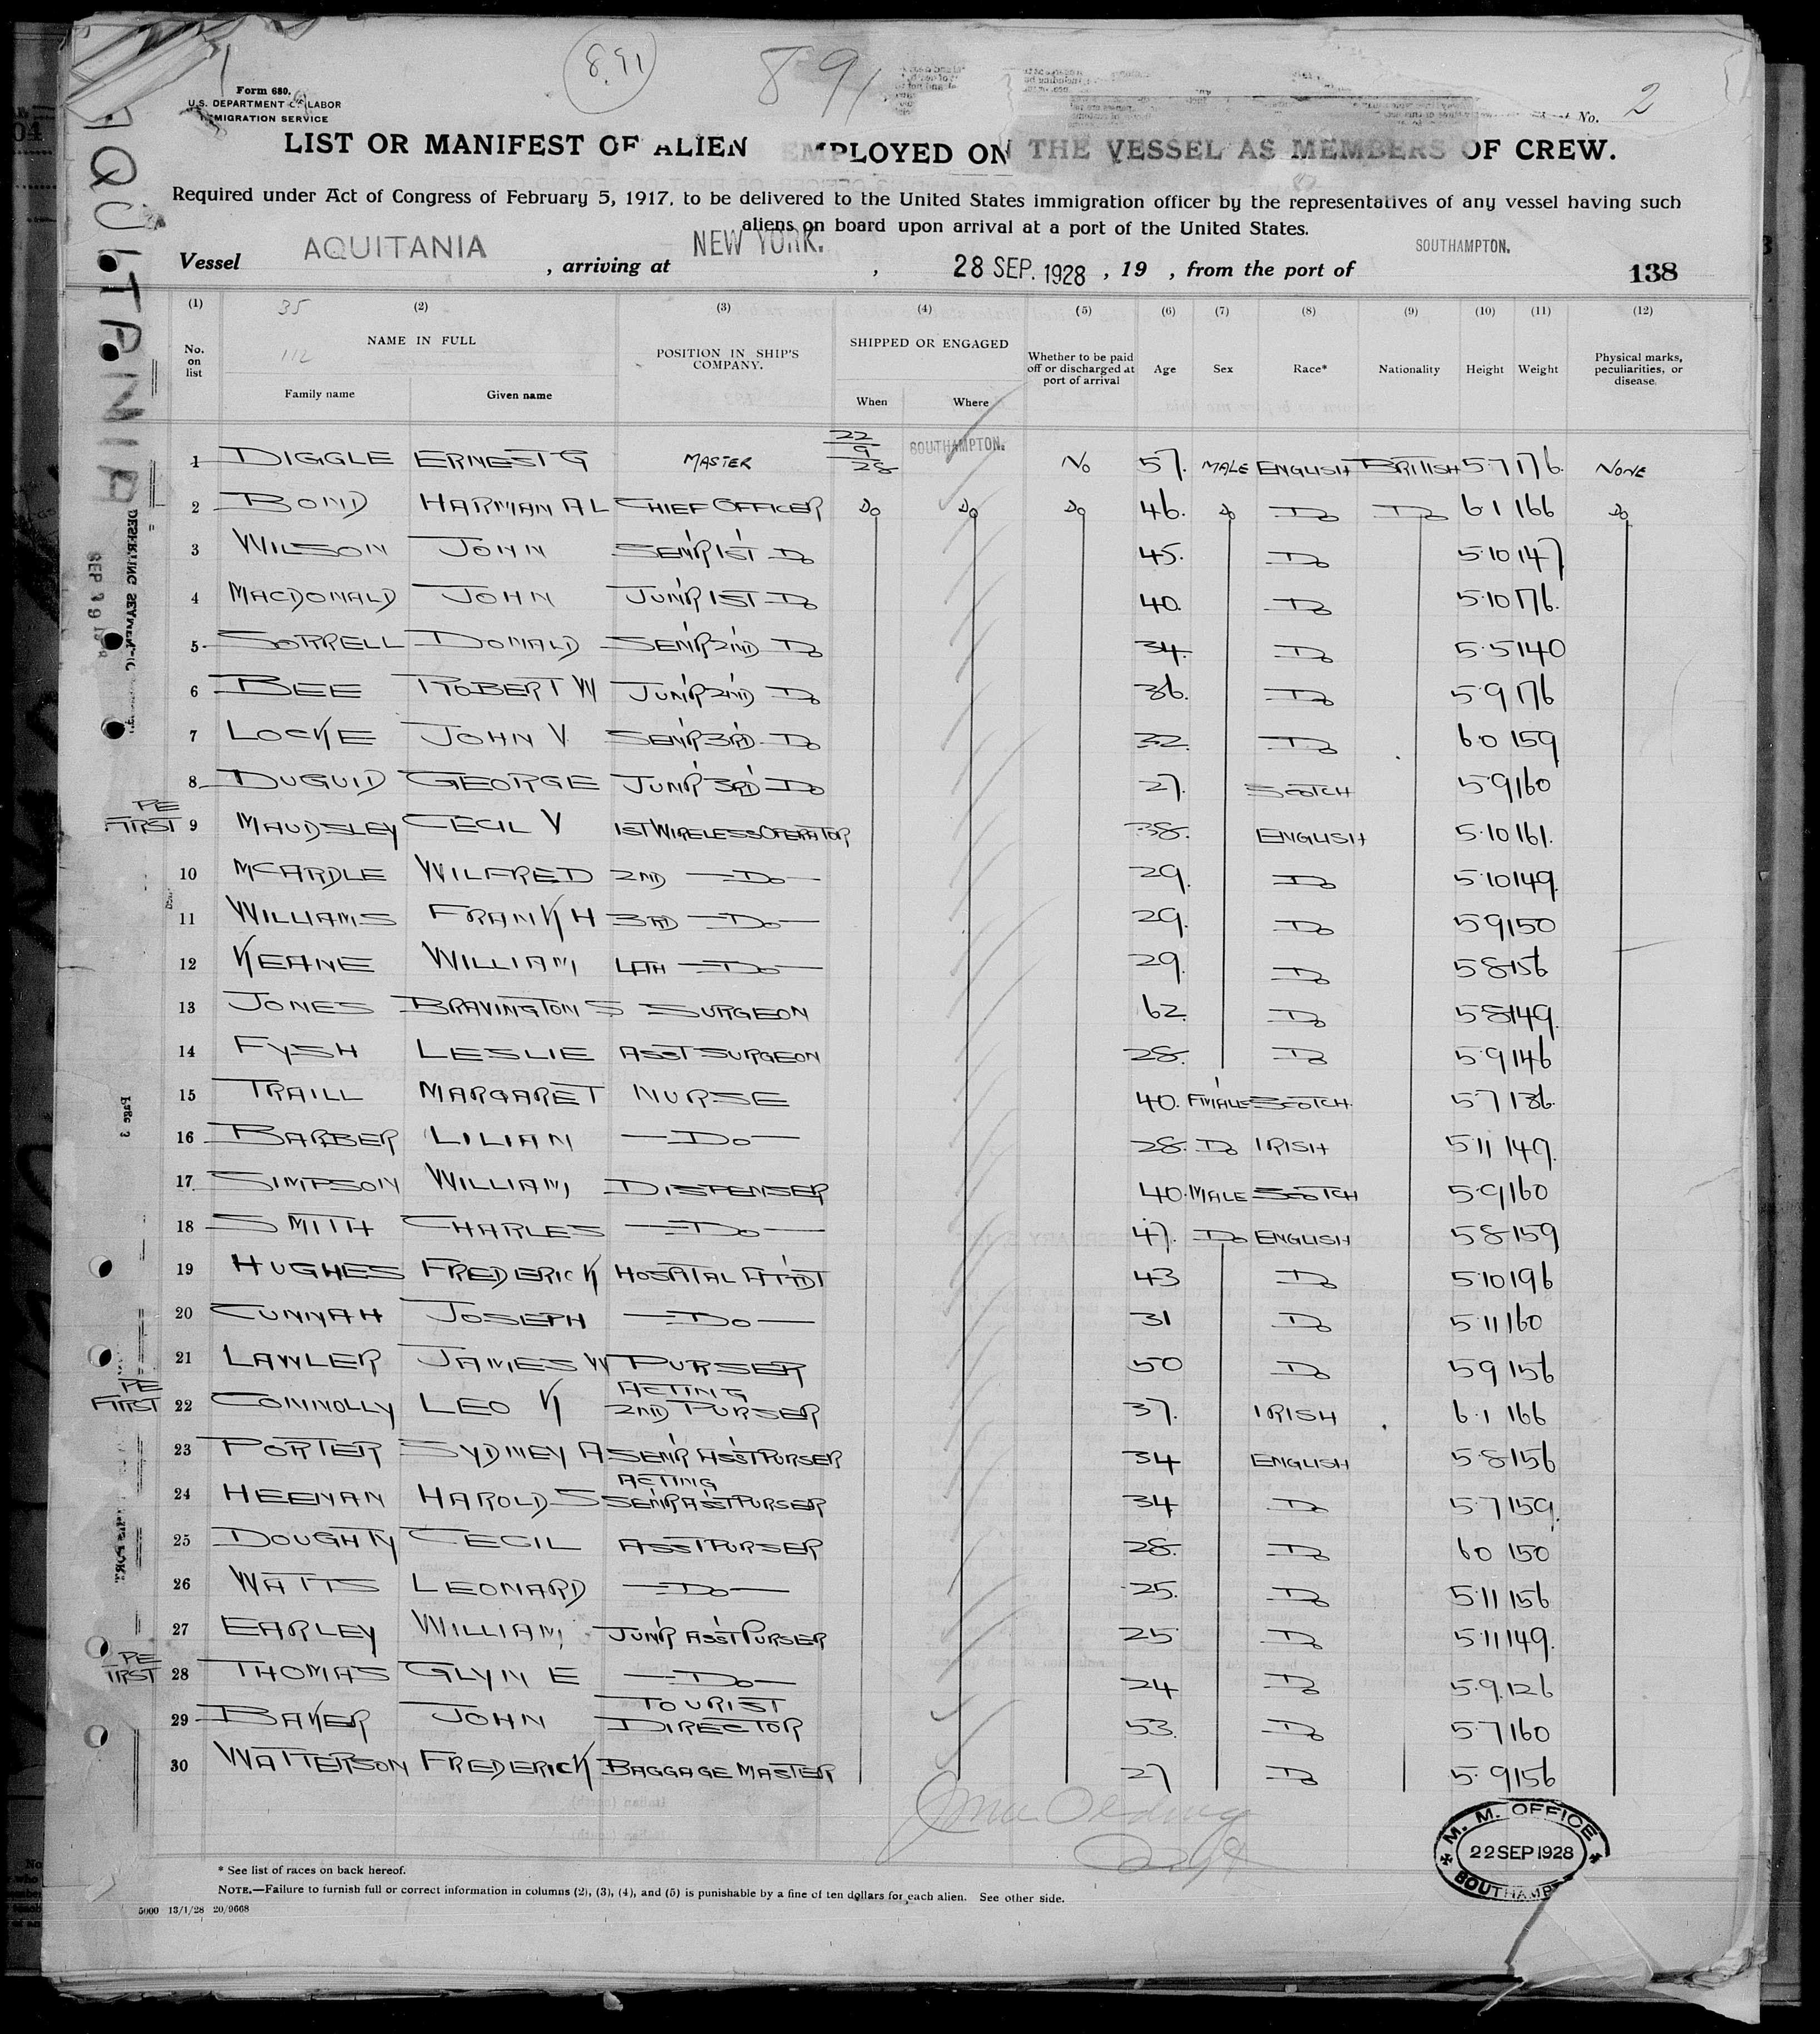 8.91
891
Form 680.
U.S. DEPARTMENT OF LABOR
IMMIGRATION SERVICE
No. 2
LIST OR MANIFEST OF ALIEN EMPLOYED ON THE VESSEL AS MEMBERS OF CREW.
Required under Act of Congress of February 5, 1917, to be delivered to the United States immigration officer by the representatives of any vessel having such
aliens on board upon arrival at a port of the United States.
Vessel AQUITANIA , arriving at NEW YORK. , 28 SEP. 1928 , 19 , from the port of SOUTHAMPTON. 138
AQUITANIA
(1) 35 (2) (3) (4) (5) (6) (7) (8) (9) (10) (11) (12)
No. on list 112 NAME IN FULL POSITION IN SHIP'S COMPANY. SHIPPED OR ENGAGED Whether to be paid off or discharged at port of arrival Age Sex Race* Nationality Height Weight Physical marks, peculiarities, or disease.
Family name Given name When Where
1 DIGGLE ERNEST G MASTER 22/9/28 SOUTHAMPTON. NO 57. MALE ENGLISH BRITISH 5·7 176. NONE
2 BOND HARMAN A L CHIEF OFFICER Do Do Do 46. Do Do Do 6·1 166 Do
3 WILSON JOHN SEN'R 1ST Do 45. Do 5·10 147
4 MACDONALD JOHN JUN'R 1ST Do 40. Do 5·10 176.
5 SORRELL DONALD SEN'R 2ND Do 34. Do 5·5 140
6 BEE ROBERT W JUN'R 2ND Do 36. Do 5·9 176
7 LOCKE JOHN V SEN'R 3RD Do 32. Do 6·0 159
8 DUGUID GEORGE JUN'R 3RD Do 27. SCOTCH 5·9 160
PE FIRST 9 MAUDSLEY CECIL V 1ST WIRELESS OPERATOR 38. ENGLISH 5·10 161.
10 MCARDLE WILFRED 2ND Do 29. Do 5·10 149.
11 WILLIAMS FRANK H 3RD Do 29. Do 5 9 150
12 KEANE WILLIAM 4TH Do 29. Do 5 8 156
13 JONES BRAVINGTON S SURGEON 62. Do 5 8 149.
14 FYSH LESLIE ASST SURGEON 28. Do 5·9 146
15 TRAILL MARGARET NURSE 40. F'MALE SCOTCH. 5 7 136.
16 BARBER LILIAN Do 28. Do IRISH 5·11 149.
17 SIMPSON WILLIAM DISPENSER 40. MALE SCOTCH 5·9 160
18 SMITH CHARLES Do 47. Do ENGLISH 5·8 159
19 HUGHES FREDERICK HOSPITAL ATT'DT 43 Do 5·10 196
20 CUNNAH JOSEPH Do 31 Do 5 11 160
21 LAWLER JAMES W PURSER 50 Do 5 9 156
PE FIRST 22 CONNOLLY LEO K ACTING 2ND PURSER 37. IRISH 6·1 166
23 PORTER SYDNEY A SEN'R ASS'T PURSER 34 ENGLISH 5·8 156
24 HEENAN HAROLD S ACTING SEN'R ASS'T PURSER 34 Do 5·7 159.
25 DOUGHTY CECIL ASST PURSER 28. Do 6 0 150
26 WATTS LEONARD Do 25. Do 5·11 156
27 EARLEY WILLIAM JUN'R ASS'T PURSER 25 Do 5 11 149.
PE FIRST 28 THOMAS GLYN E Do 24 Do 5·9. 126
29 BAKER JOHN TOURIST DIRECTOR 53. Do 5·7 160
30 WATTERSON FREDERICK BAGGAGE MASTER 27 Do 5·9 156
M. M. OFFICE
22 SEP 1928
* See list of races on back hereof.
NOTE.—Failure to furnish full or correct information in columns (2), (3), (4), and (5) is punishable by a fine of ten dollars for each alien. See other side.
5000 13/1/28 20/9668